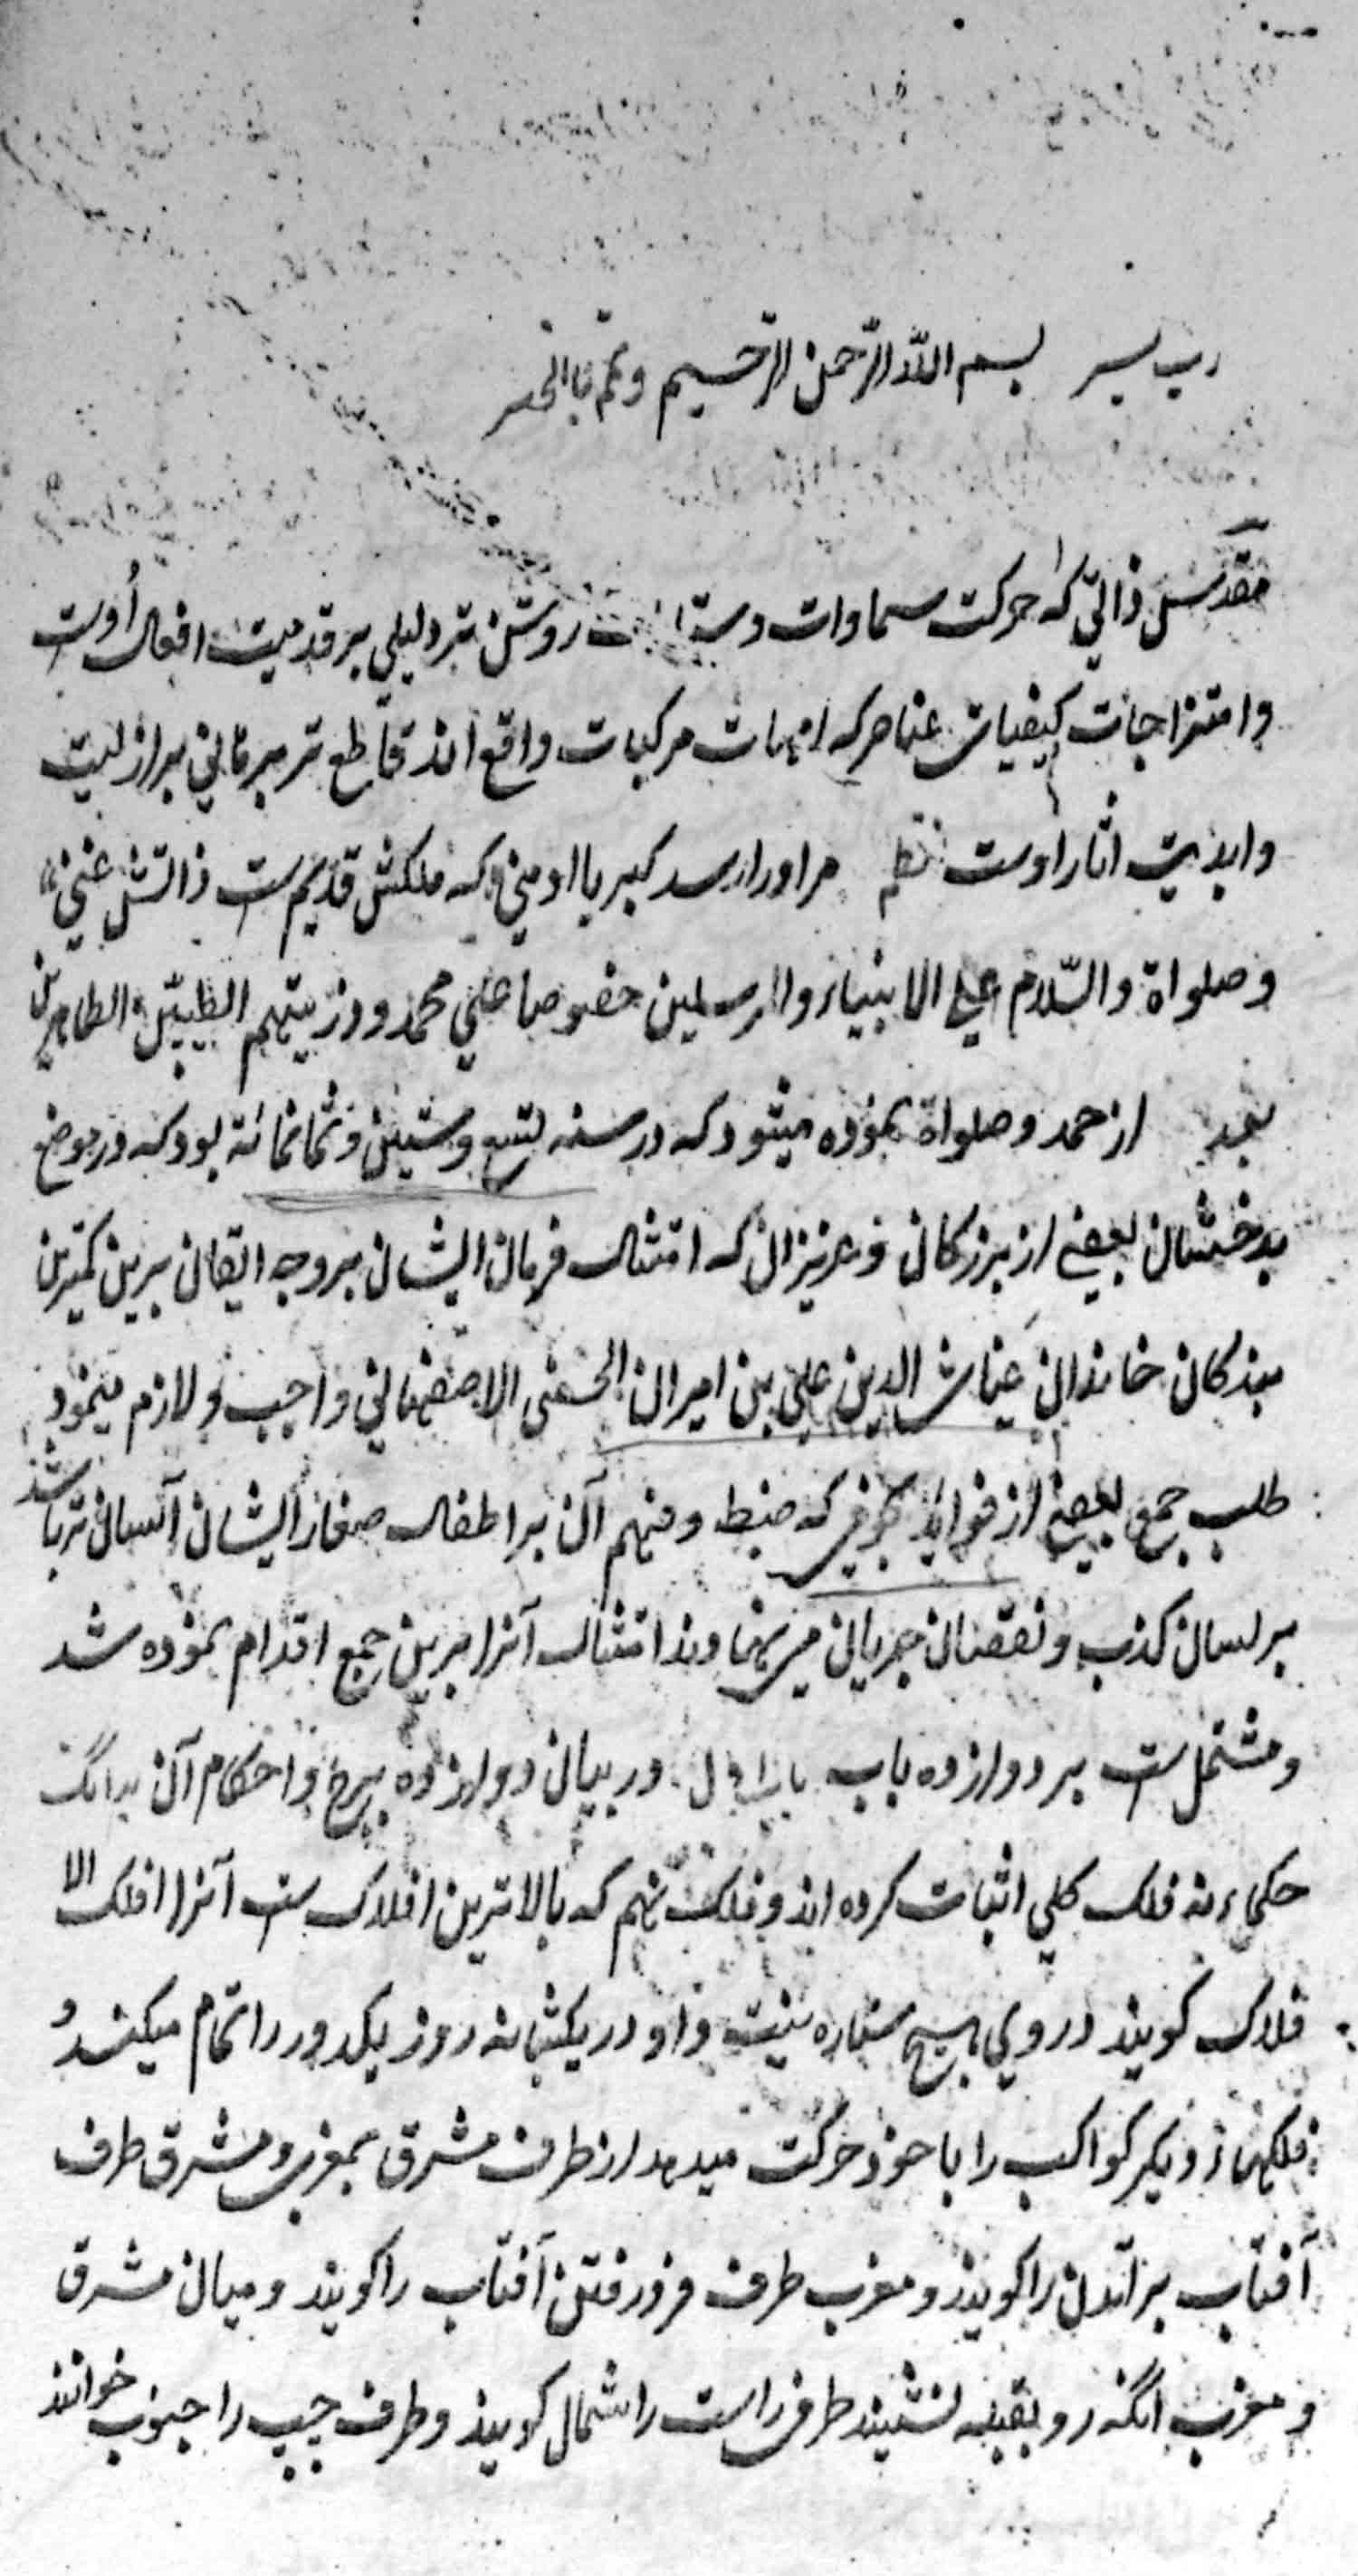 رب يسر بسم الله الرّحمن الرّحيم وتمّم بالخير
مقدّس ذاتي كه حركت سماوات روشن تر دليلي بر قدميت افعال اوست
وامتزاجات كيفيات عناصر كه امهات مركبات واقع اند قاطع تر برهاني بر ازليت
وابديت اثار اوست نظم مر اورا رسد كبريا و مني كه ملكش قديم ست ذاتش غني
وصلواة والسّلام علي الانبياء والمرسلين خصوصا علي محمد وذريتهم الطيبين الطاهرين
بعد از حمد وصلواة نموده ميشود كه در سنه تسع وستين وثمانمائة بود كه در موضع
بدخشان بعضي از بزركان وعزيزان كه امتثال فرمان ايشان بر وجه اتقان برين كمترين
بندكان خاندان غياث الدين علي بن اميران الحسني الاصفهاني واجب و لازم مينمود
طلب جمع بعضي از فوايد نجومي كه ضبط وفهم آن بر اطفال صغار ايشان آسان تر باشد
بر لسان كذب ونقصان جريان امتثال آنرا برين جمع اقدام نموده شد
ومشتمل ست بر دوازده باب باب اول در بيان دوازده برج واحكام آن بدانك
حكماء نه فلك كلي اثبات كرده اند وفلك نهم كه بالاترين افلاك ست آنرا فلك الا
فلاك كويند در وي هيچ ستاره نيست و او در يكشبانه روز يكدور را تمام ميكند و
فلكهاء ديكر كواكب را با خود حركت ميدهد از طرف مشرق بمغرب ومشرق طرف
آفتاب برآمدن را كويند و مغرب طرف فرو رفتن آفتاب را كويند وميان مشرق
ومغرب انگه رو بقبله نشيند طرف راست را شمال كويند وطرف چپ را جنوب خوانند